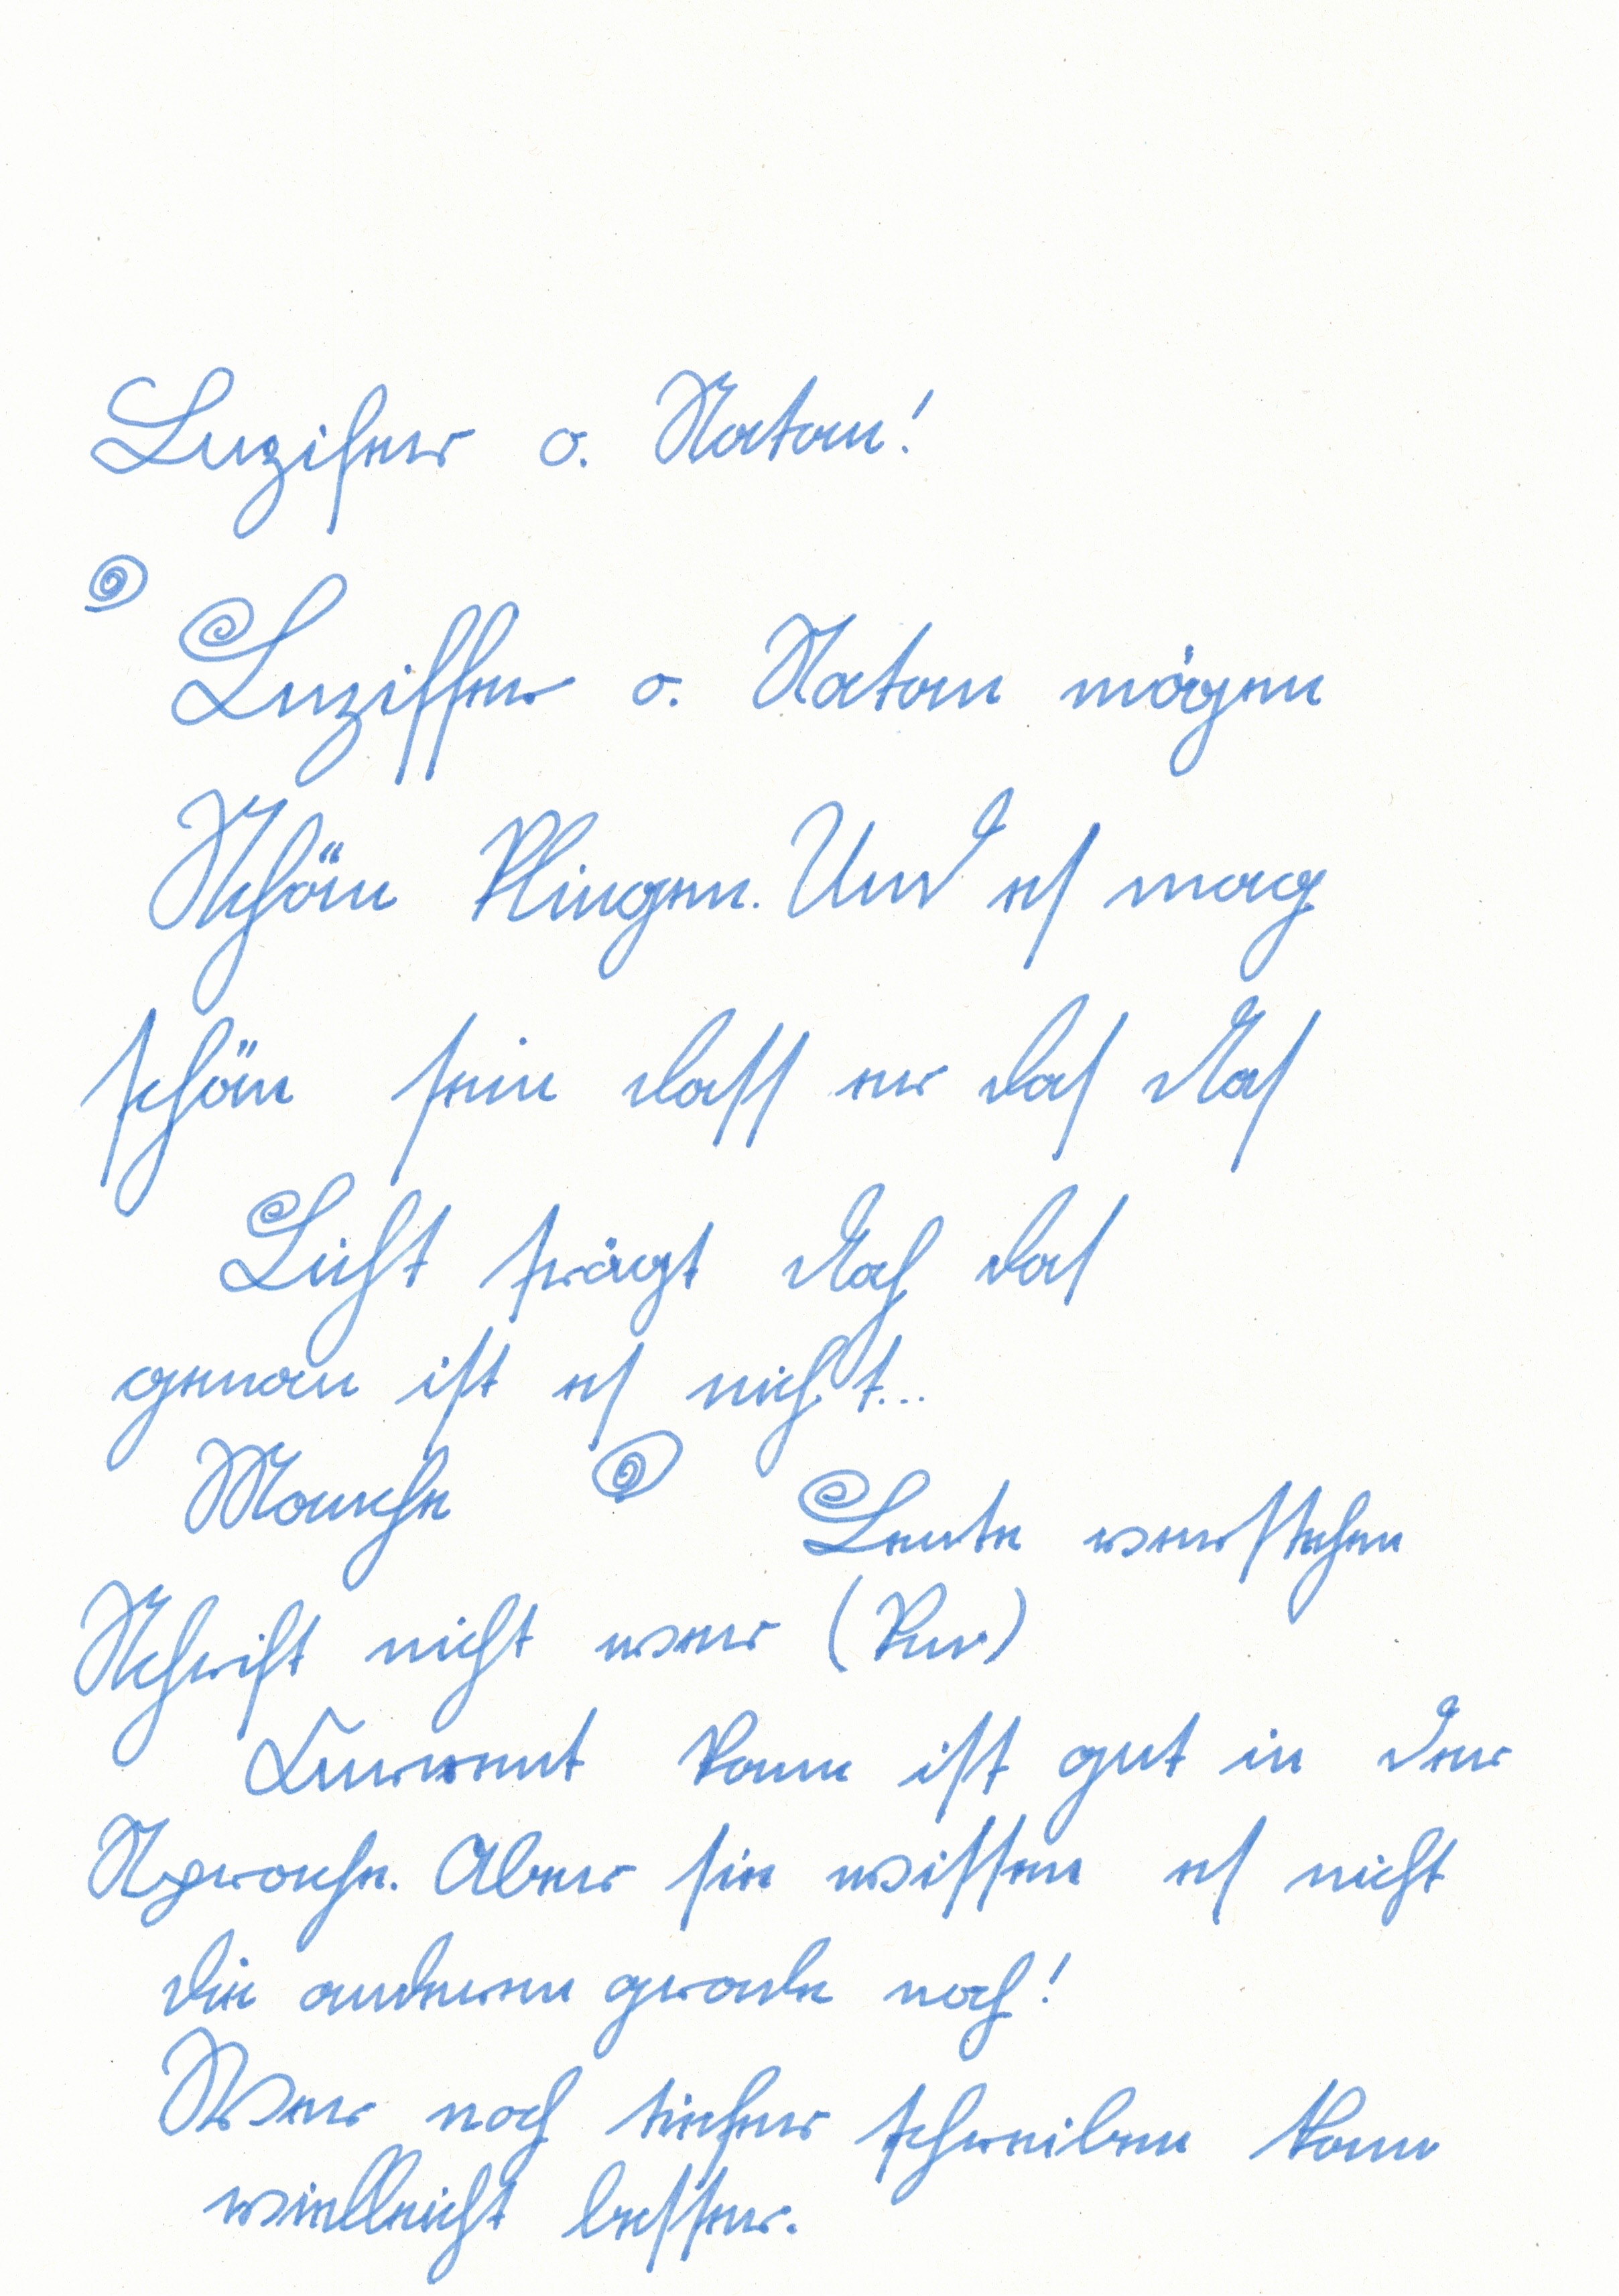 Luzifer o. Satan!
Luziffer o. Satan mögen
Schön Klingen. Und es mag
schön sein dass er das Das
Licht trägt Doch das
genau ist es nicht...
Manche Leute verstehen
Schrift nicht wer (Kur)
Current kann ist gut in der
Sprache. Aber sie wissen es nicht
die anderen gerade noch!
Wer noch schreiben kann
vielleicht besser.